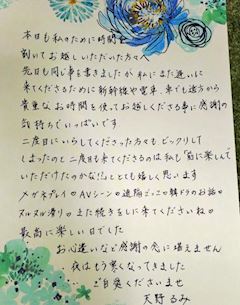 本日も私のために時間を
割いてお越しいただいた方々へ
先日も同じ事を書きましたが 私にまた逢いに
来てくださるために新幹線や電車、車でも遠方から
貴重なお時間を使ってお越しくださる事に感謝の
気持ちでいっぱいです
二度目にいらしてくださった方々もビックリして
しまったのと二度目も来てくださるのは私と「前に楽しんで
いただけたのかな!」ととても嬉しく思います
メガネプレイ♡AVシーンの追随ごっこ♡韓ドラのお話♡
ヌルヌル滑り♡また続きをしに来てくださいね♡
最高に楽しい日でした
お心遣いなど感謝の念に堪えません
夜はもう寒くなってきました
ご自愛くださいませ
天野るみ